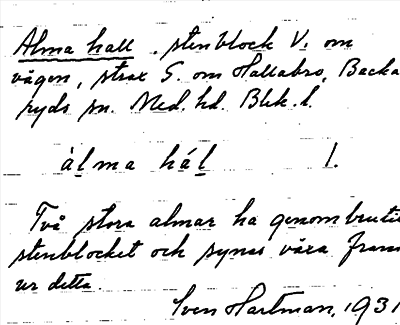 Alma hall . stenblock V. om
vägen, strax S. om Hallabro, Backa
ryds sn. Med. hd. Blek. l.
àlma hál 1.
Två stora almar ha genombrutit
stenblocket och synas växa fram
ur detta.
Sven Hartman, 1931